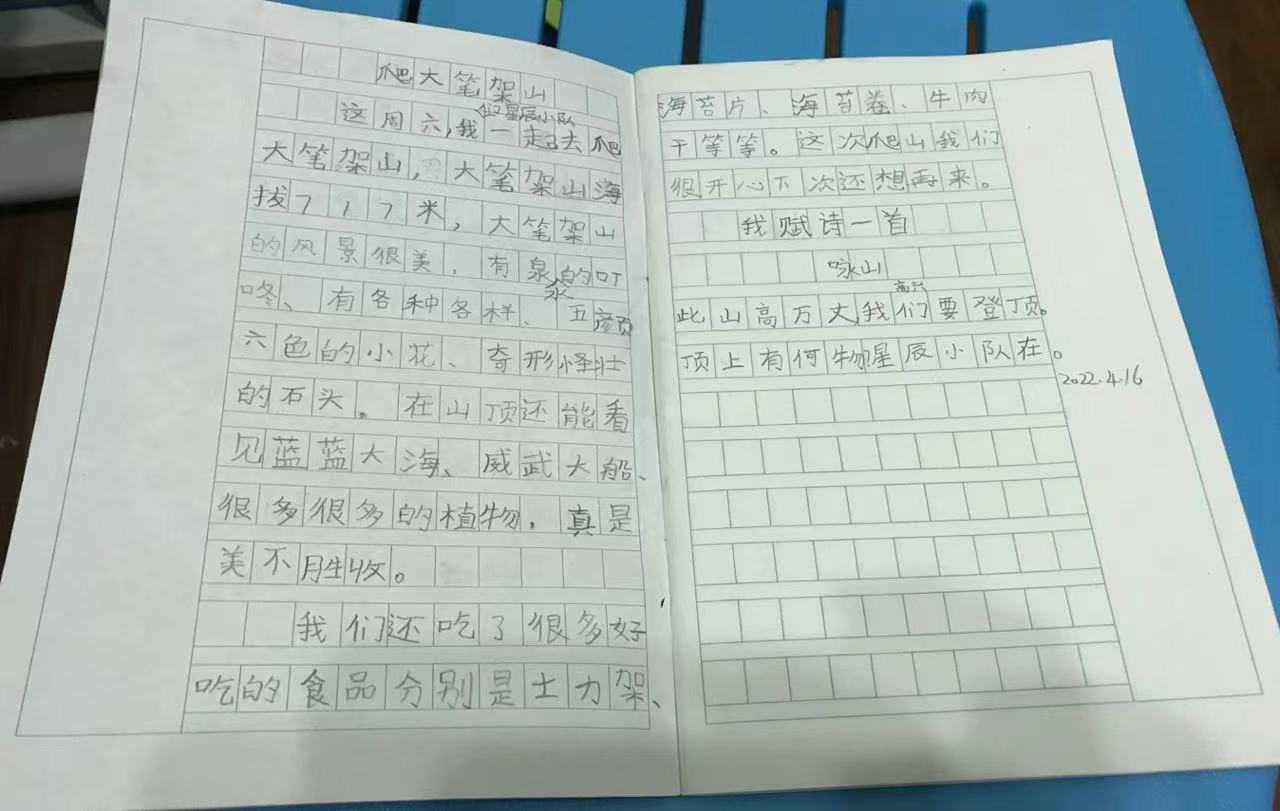 爬大笔架山
和星辰小队
这周六,我一起去爬
大笔架山,大笔架山海
拔717米,大笔架山
的风景很美,有泉水的叮
咚、有各种各样、五颜
六色的小花、奇形怪壮
的石头。在山顶还能看
见蓝蓝大海、威武大船、
很多很多的植物,真是
美不胜收。
我们还吃了很多好
吃的食品分别是士力架、
海苔片、海苔卷、牛肉
干等等。这次爬山我们
很开心下次还想再来。
我赋诗一首
咏山
高兴
此山高万丈,我们要登顶。
顶上有何物星辰小队在。
2022.4.16